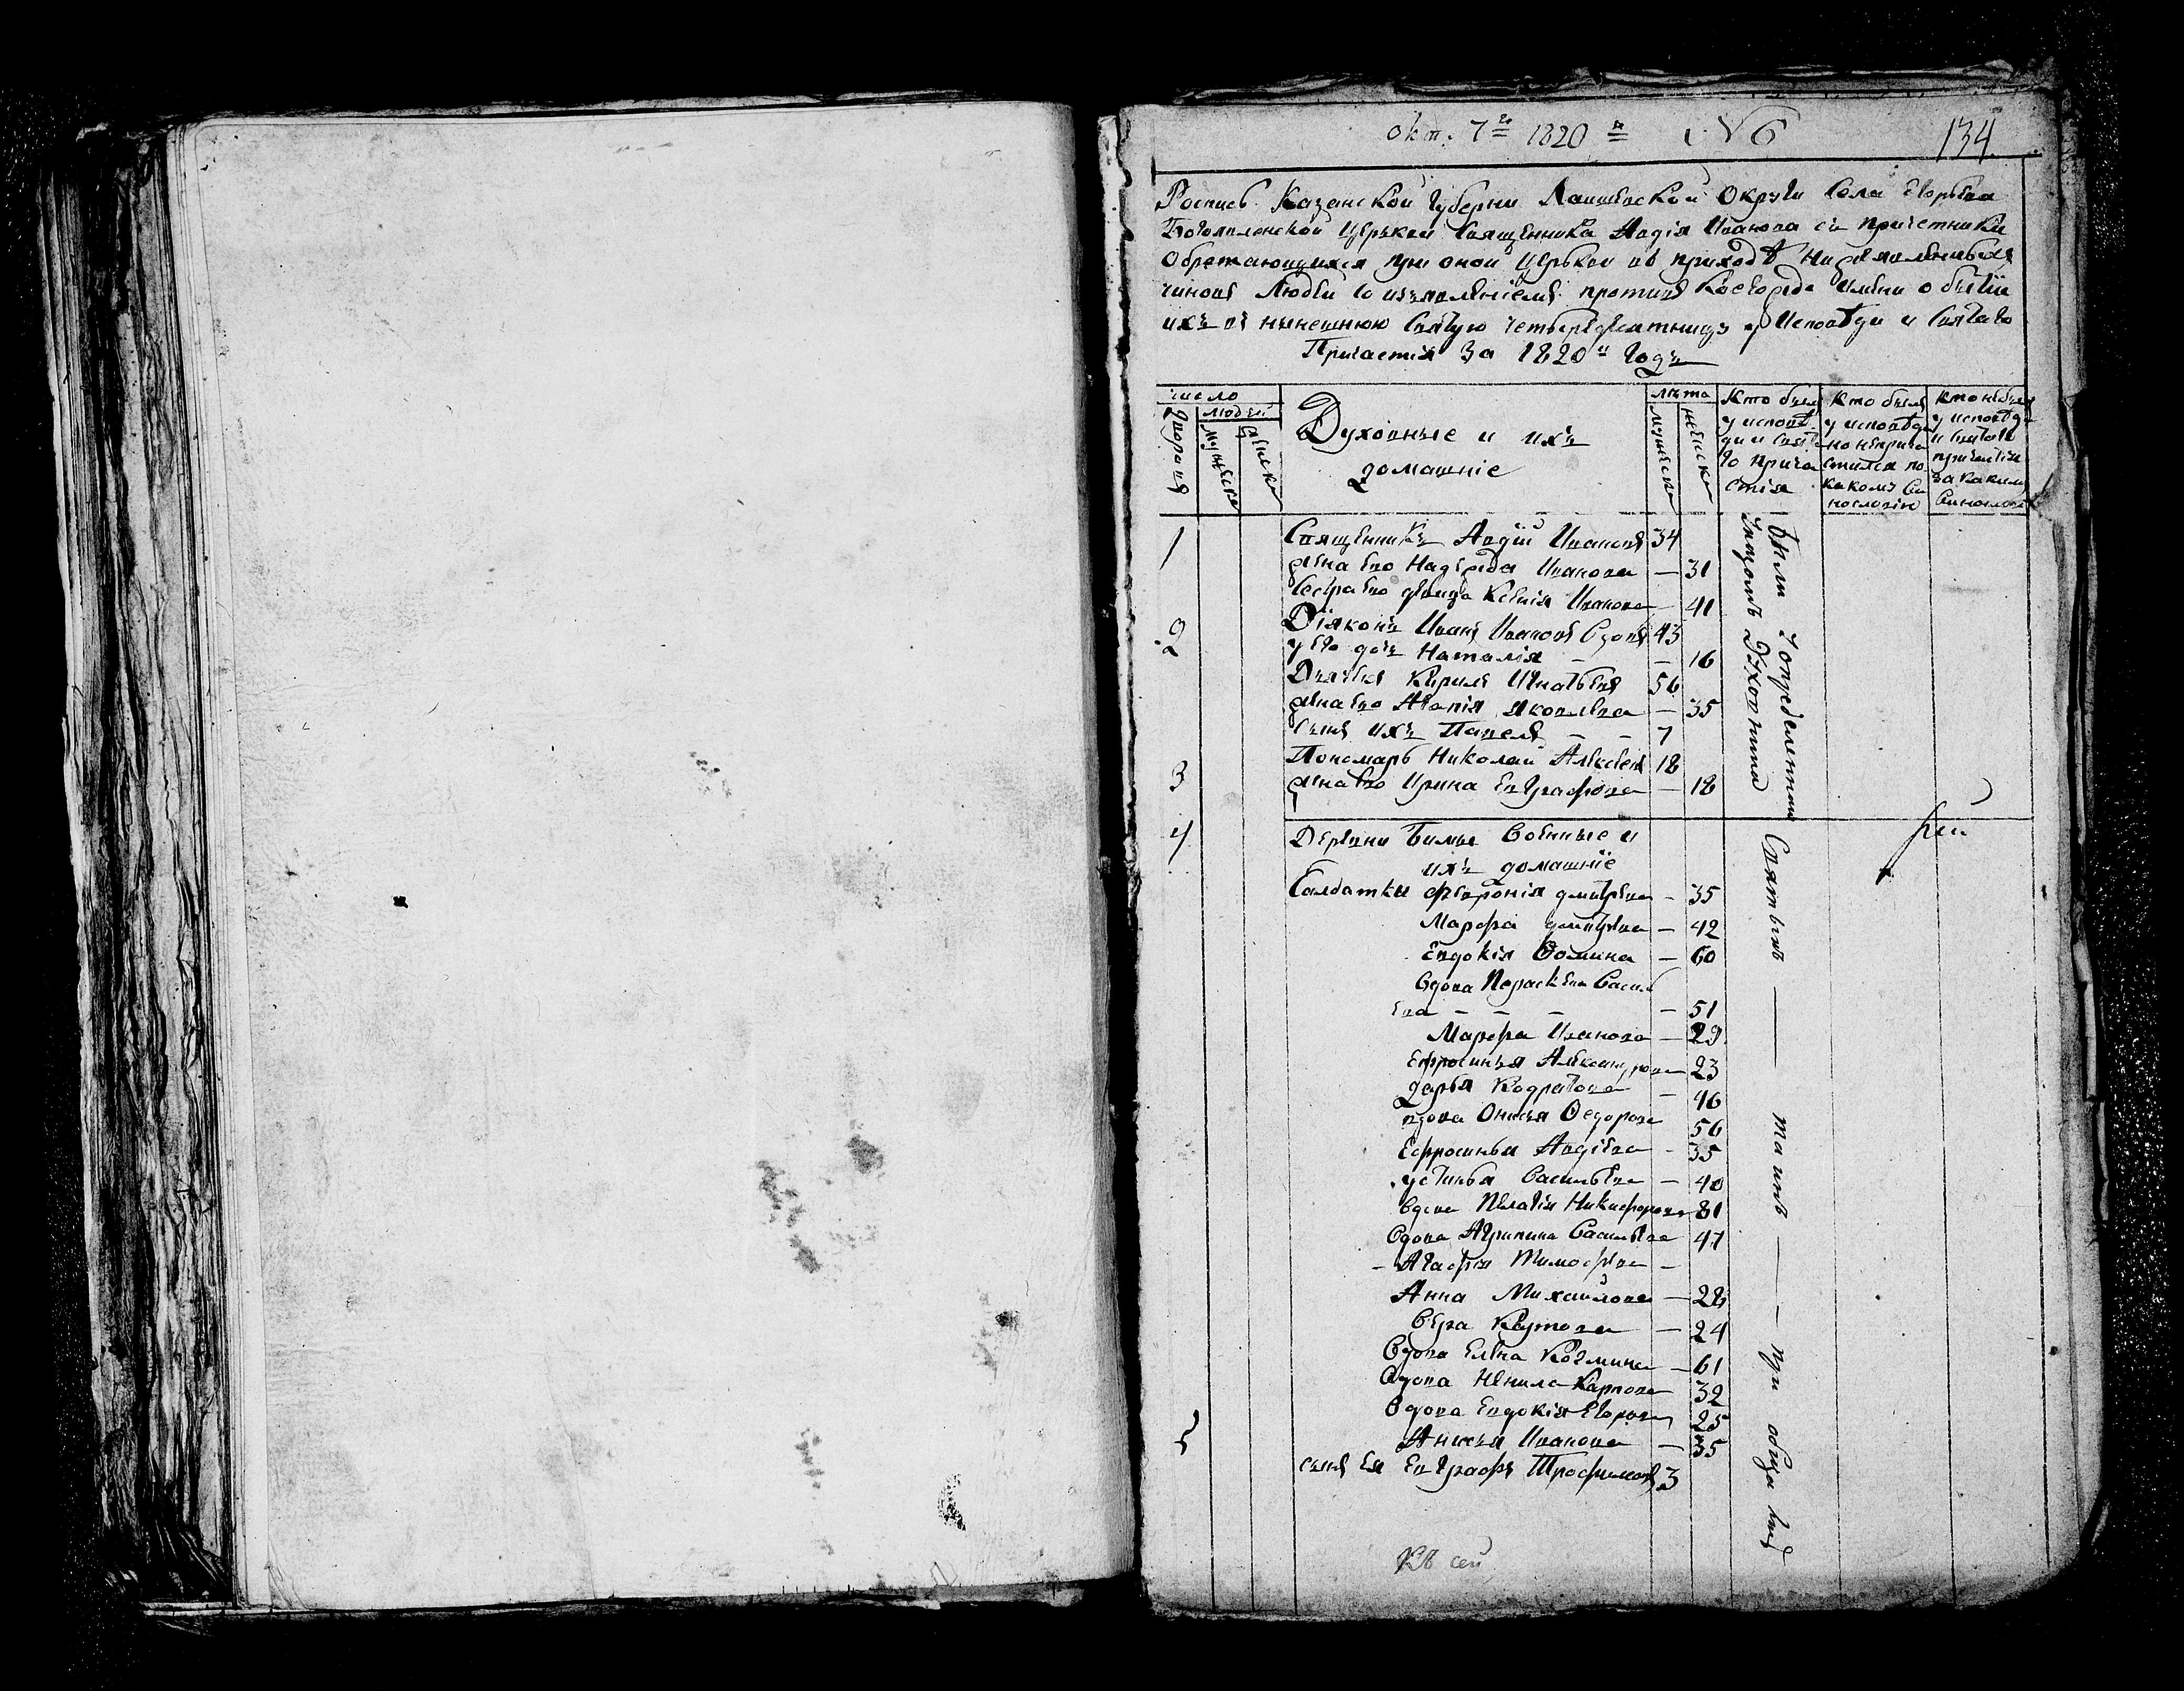 окт: 7го 1820 № 6
134.
Роспись Казанской Губерни Лаишевской Округи Села Егорьева
Богоявленской церькви Священника Авдiя Иванова съ причетники
Обретающихся при оной церькви въ приходѣ Нижеявленныхъ
чиновъ Людей со изъявленiемъ противъ Коегождо имени о бытiи
ихъ въ нынешнюю Святую четверодесятницу у Исповѣди и Святаго
Причастiя За 1820й Годъ
число
людей
дворовъ
мужеска
женска
Духовные и ихъ
домашнiе
лѣта
мужеска
женска
Кто былъ
у исповѣ
ди и свята
го прича
стiя
Кто былъ
у исповѣди
но неприча
стился по
какому ви
нословiю
кто небылъ
у исповѣди
и святаго
причастiя
за какимъ
винослов
1 Священникъ Авдiй Ивановъ 34
жена ево Надежда Иванова — 31
Сестра ево девица Ксенiя Иванова — 41
2 Дiяконъ Иванъ Ивановъ Вдовъ 43
у его дочь Наталiя — — 16
Дьячекъ Кирилъ Игнатьевъ 56
жена ево Яковлева — 35
Сынъ ихъ Павелъ — — 7
3 Пономарь Николай Алексеевъ 18
жена ево Ирина Евграфова — 18
4 Деревни Военные и
ихъ домашнiе
Салдатки Феврониiя Дмитрева — 35
Марфа Дмитрева — 42
Евдокiя Фомина — 60
Вдова Параскева Васил
ева — — — — 51
Марфа Иванова — 29
Ефросинья Александрова — 23
Дарья Кодратова — 46
вдова Онисья Федорова 56
Ефросинья Авдiева — 35
Устинья Васильева — 40
Вдова Пелагiя Никифорова 81
Вдова Агрипина Васильева 47
— Агафья Тимофева —
Анна Михайлова — 28
Вера — 24
Вдова Елена Козмина — 61
Вдова Ненила Карпова 32
Вдова Евдокiя Егорова 25
5 Анисья Иванова — 35
сынъ ея Евграфъ Трофимовъ 3
Были
Святыхъ — таинъ — при